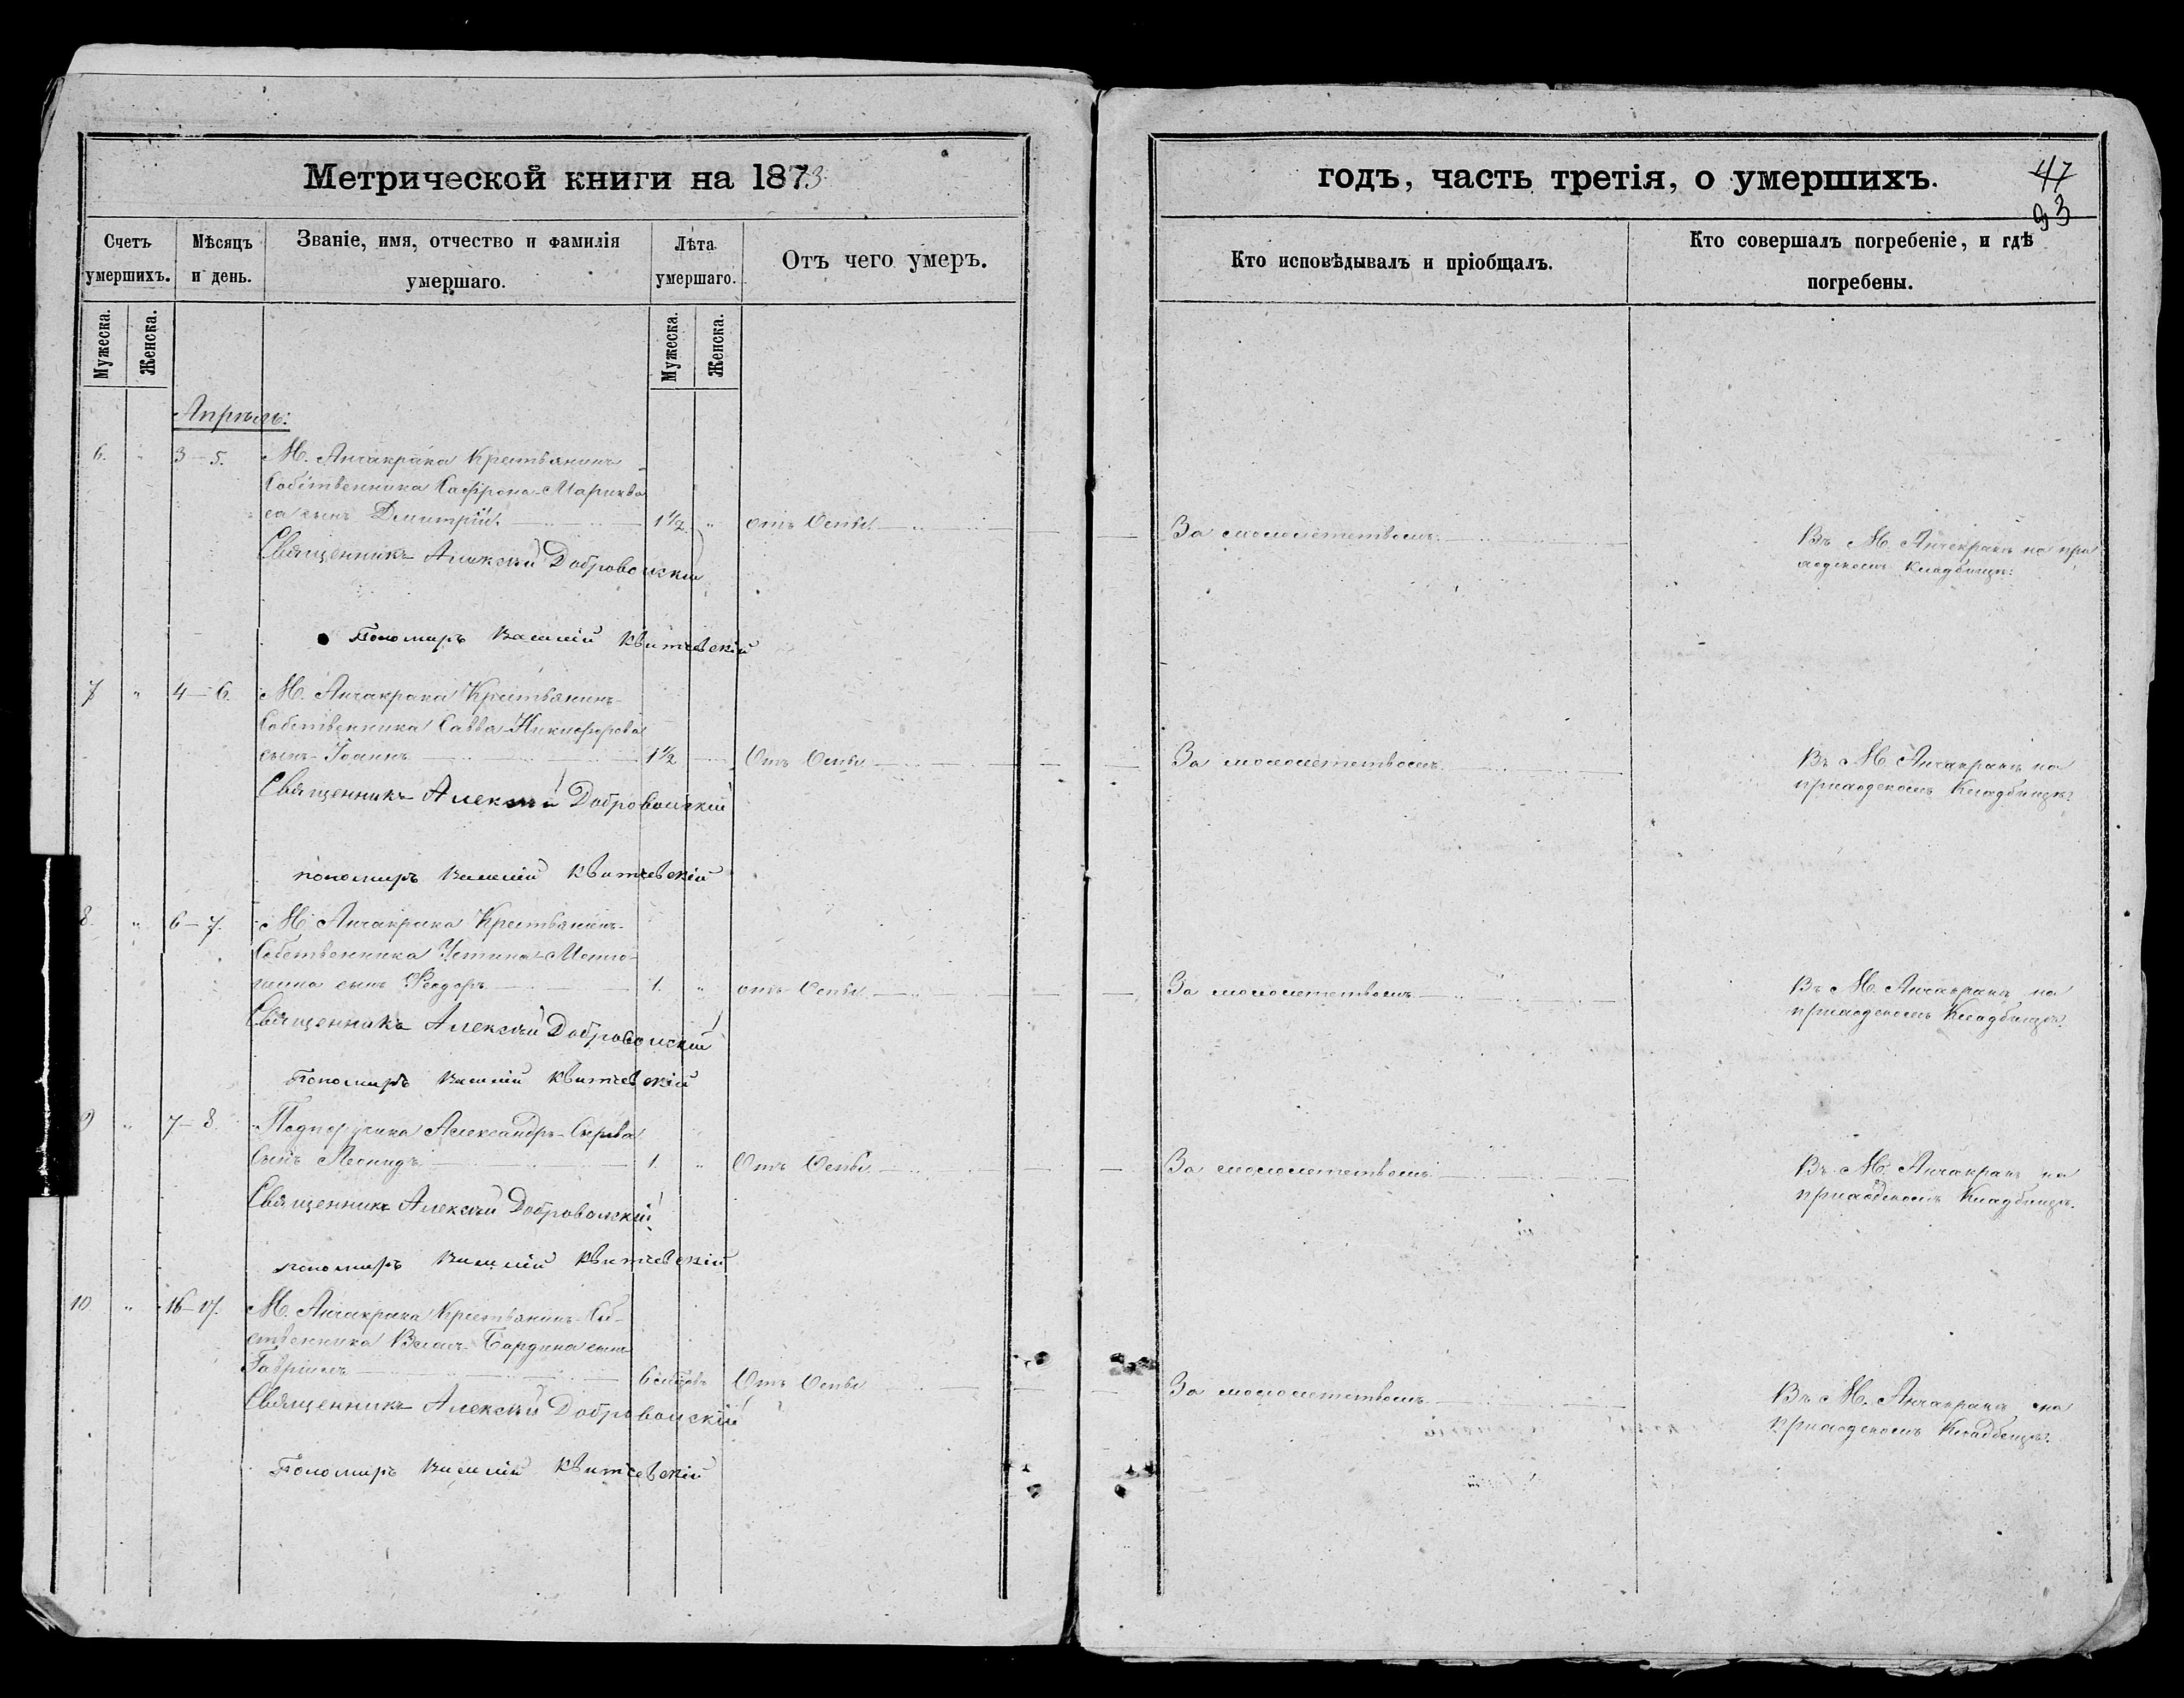 Метрической книги на 1873
годъ, часть третія, о умершихъ.
47
93
Счетъ умершихъ.
Мѣсяцъ и день.
Званіе, имя, отчество и фамилія умершаго.
Лѣта умершаго.
Отъ чего умеръ.
Кто исповѣдывалъ и пріобщалъ.
Кто совершалъ погребеніе, и гдѣ погребены.
Мужеска.
Женска.
Мужеска.
Женска.
Апрѣль:
6. " 3–5. М. Анчакрака Крестьянинъ
Собственника Софрона
сынъ Димитрій. 1½ " отъ Оспы. За малолетствомъ. Въ М. Анчекракѣ на при
ходскомъ кладбищѣ.
Священникъ Алексѣй Добровольскій
Пономарь Василій Квитчевскій
7 " 4–6. М. Анчакрака Крестьянинъ
Собственника Савва Никифорова
сынъ Іоаннъ 1½ Отъ Оспы За малолетствомъ Въ М. Анчакракѣ на
приходскомъ Кладбищѣ.
Священникъ Алексѣй Добровольскій
пономарь Василій Квитчевскій
8. " 6–7. М. Анчакрака Крестьянинъ
Собственника Устина
сынъ Ѳеодоръ 1. " отъ Оспы За малолетствомъ Въ М. Анчакракѣ на
приходскомъ Кладбищѣ.
Священникъ Алексѣй Добровольскій
Пономарь Василій Квитчевскій
9 " 7–8. Подпоручика Александръ
Сынъ Леонидъ 1. " Отъ Оспы За малолетствомъ Въ М. Анчакракѣ на
приходскомъ Кладбищѣ.
Священникъ Алексѣй Добровольскій
пономарь Василій Квитчевскій
10 " 16–17. М. Анчакрака Крестьянинъ Соб-
ственника сынъ
Гавріилъ 6 месяцовъ Отъ Оспы За малолетствомъ Въ М. Анчакракѣ на
приходскомъ Кладбищѣ.
Священникъ Алексѣй Добровольскій
Пономарь Василій Квитчевскій